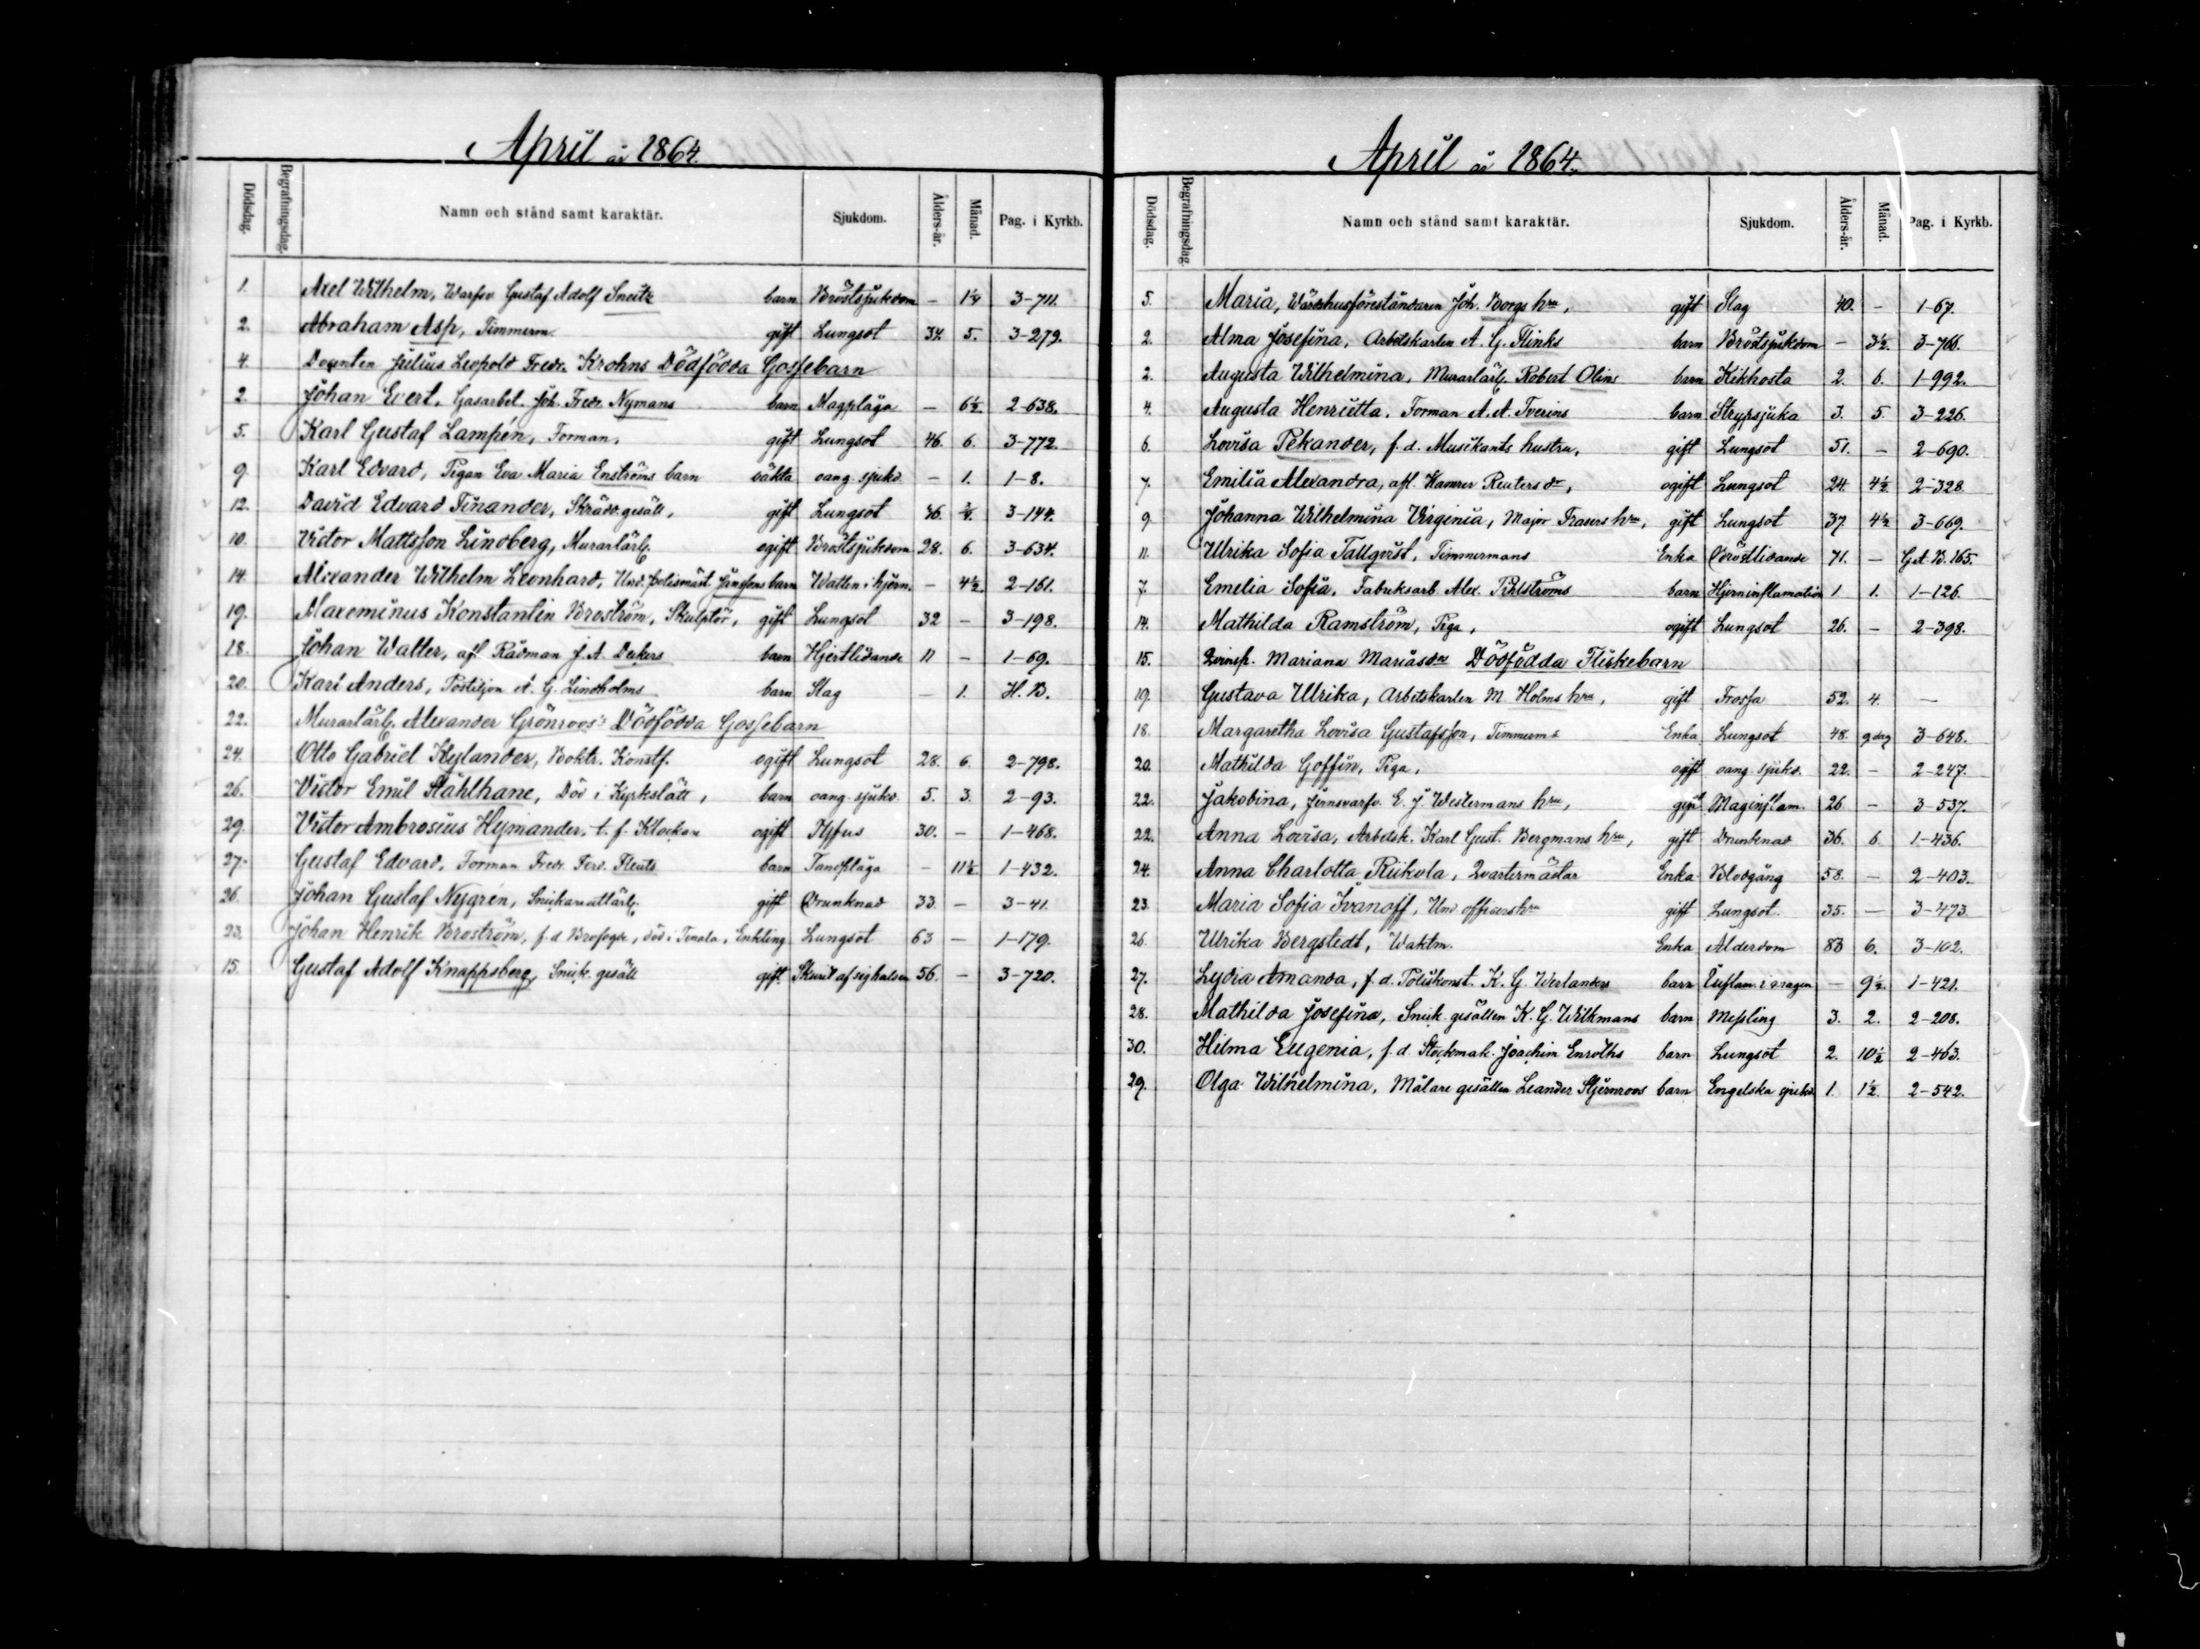 April år 1864.
Dödsdag. Begrafningsdag. Namn och stånd samt karaktär. Sjukdom. Ålders-år. Månad. Pag. i Kyrkb.
1. Axel Wilhelm, Warfsv Gustaf Adolf Sneitz barn Bröstsjukdom – 1¼ 3-711.
2. Abraham Asp, Timmerm. gift Lungsot 34. 5. 3-279.
4. Docenten Julius Leopold Fredr. Krohns Dödfödda Gossebarn
2. Johan Evert, Gasarbet. Joh. Fredr. Nymans barn Magplåga – 6½ 2-638.
5. Karl Gustaf Lampén, Forman, gift Lungsot 46. 6. 3-772.
9. Karl Edvard, Pigan Eva Maria Enströms barn oäkta oang. sjukd. – 1. 1-8.
12. David Edvard Finander, Skrädd. gesäll, gift Lungsot 36. 3-144.
10. Victor Mattsson Lindberg, Murarlärl. ogift Bröstsjukdom 28. 6. 3-634.
14. Alexander Wilhelm Leonhard, Und. polismäst. Janssons barn Watten i hjern. – 4½. 2-161.
19. Maxeminus Konstantin Broström, Skulptör, gift Lungsot 32 – 3-198.
18. Johan Walter, afl. Rådman J. A. Deckers barn Hjertlidande 11 – 1-69.
20. Karl Anders, Postiljon A. G. Lindholms barn Slag – 1. H. B.
22. Murarlärl. Alexander Grönroos's Dödfödda Gossebarn
24. Otto Gabriel Kylander, Boktr. Konstf. ogift Lungsot 28. 6. 2-798.
26. Victor Emil Stålhane, Död i Kyrkslätt, barn oang. sjukd. 5. 3. 2-93.
29. Victor Ambrosius Hejmander, t. f. Klockare ogift Tyfus 30. – 1-468.
27. Gustaf Edvard, Forman Fredr. Ferd. Fleuts barn Tandplåga – 11½ 1-432.
26. Johan Gustaf Nygrén, Snickareatlärl. gift Drunknad 33. – 3-41.
23. Johan Henrik Broström, f.d. Brofogde, död i Tenala, Enkling Lungsot 63 – 1-179.
15. Gustaf Adolf Knappsberg, Snick. gesäll gift Skurit af sig halsen 56. – 3-720.
April år 1864.
Dödsdag. Begrafningsdag. Namn och stånd samt karaktär. Sjukdom. Ålders-år. Månad. Pag. i Kyrkb.
5. Maria, Wärdshusföreståndaren Joh. Borgs hru, gift Slag 40. – 1-67.
2. Alma Josefina, Arbetskarlen A. G. Flinks barn Bröstsjukdom – 3½. 3-766.
2. Augusta Wilhelmina, Murarlärl. Robert Olins barn Kikhosta 2. 6. 1-992.
4. Augusta Henrietta, Forman A. A. Tverins barn Strypsjuka 3. 5. 3-226.
6. Lovisa Pekander, f.d. Musikants hustru, gift Lungsot 51. – 2-690.
7. Emilia Alexandra, afl. Kamrer Reuters dr, ogift Lungsot 24. 4½ 2-328.
9. Johanna Wilhelmina Virginia, Major Frasers hru, gift Lungsot 37. 4½ 3-669.
11. Ulrika Sofia Tallqvist, Timmermans Enka Bröstlidande 71. – G.A.B. 165.
7. Emelia Sofia, Fabriksarb. Alex. Pihlströms barn Hjerninflamation 1 1. 1-126.
14. Mathilda Ramström, Piga, ogift Lungsot 26. – 2-398.
15. Qvinsp. Mariana Mariasdr Dödfödda Flickebarn
19. Gustava Ulrika, Arbetskarlen M. Holms hru, gift Frossa 52. 4. –
18. Margaretha Lovisa Gustafsson, Timmerms Enka Lungsot 48. 9 dag 3-648.
20. Mathilda Goffin, Piga, ogift oang. sjukd. 22. – 2-247.
22. Jakobina, Jernsvarfv. E. J. Westermans hru, gift Maginflam. 26 – 3-537.
22. Anna Lovisa, Arbetsk. Karl Gust. Bergmans hru, gift Drunknad 36. 6. 1-436.
24. Anna Charlotta Riikola, Qvartermästar Enka Blodgång 58. – 2-403.
23. Maria Sofia Ivanoff, Und. officers hru gift Lungsot. 35. – 3-473.
26. Ulrika Bergstedt, Waktm. Enka Ålderdom 83 6. 3-102.
27. Lydia Amanda, f.d. Poliskonst. K. G. Werlanders barn Inflam. i magen – 9½. 1-421.
28. Mathilda Josefina, Snick. gesällen K. G. Wilkmans barn Messling 3. 2. 2-208.
30. Hilma Eugenia, f.d. Stockmak. Joachim Enroths barn Lungsot 2. 10½ 2-463.
29. Olga Wilhelmina, Målare gesällen Leander Stjernroos barn Engelska sjukd. 1. 1½. 2-542.